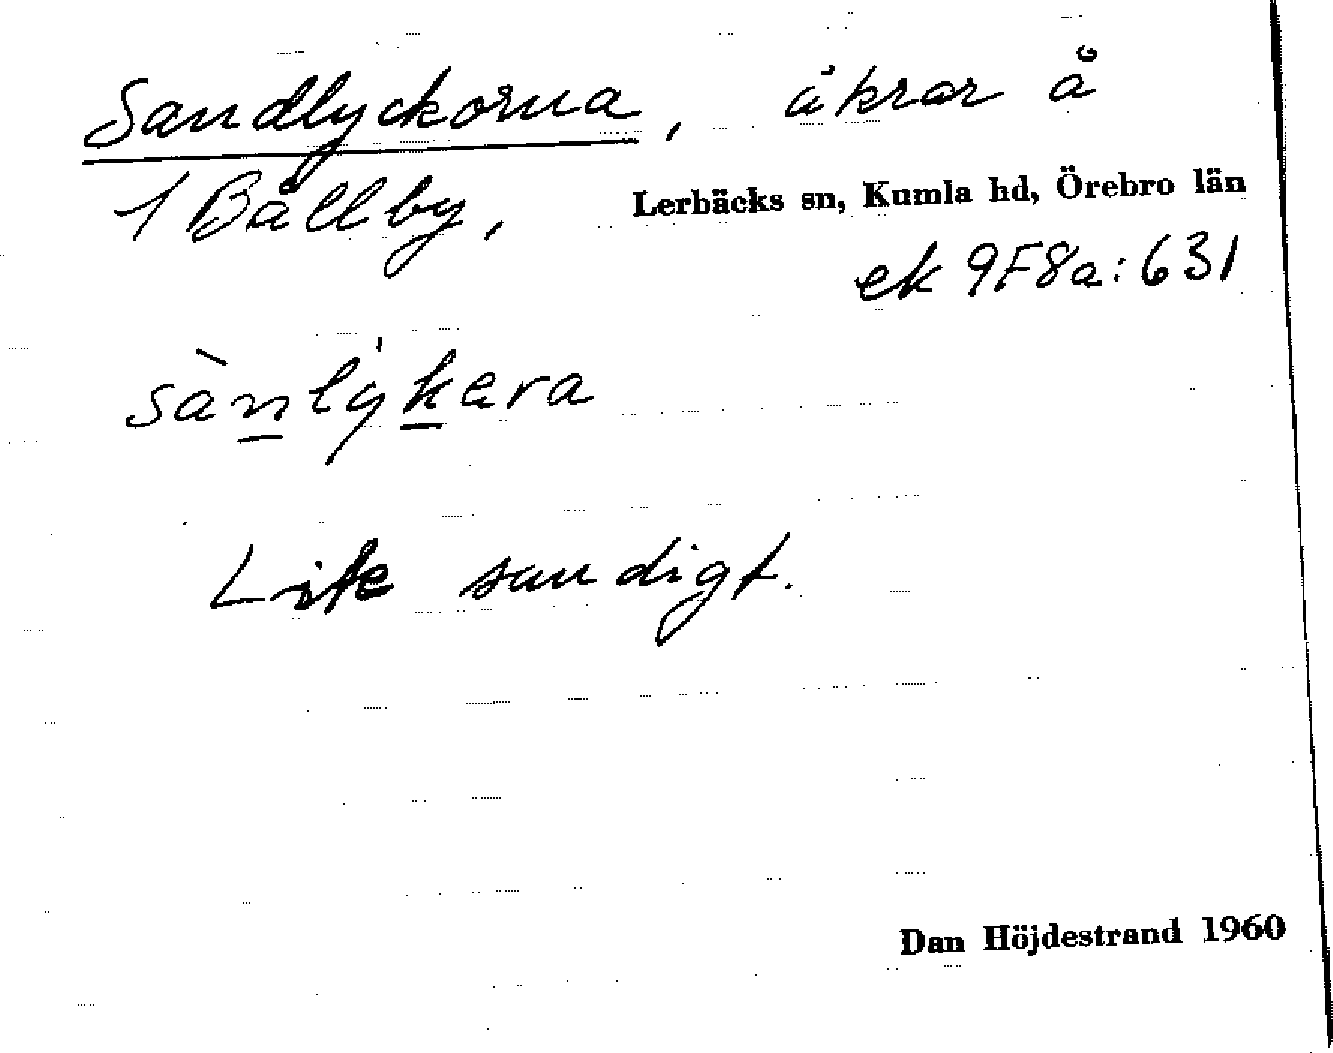 Sandlyckorna, åkrar å
1 Bållby, Lerbäcks sn, Kumla hd, Örebro län
ek 9F8a:631
sànlýkera
Lite sandigt.
Dan Höjdestrand 1960